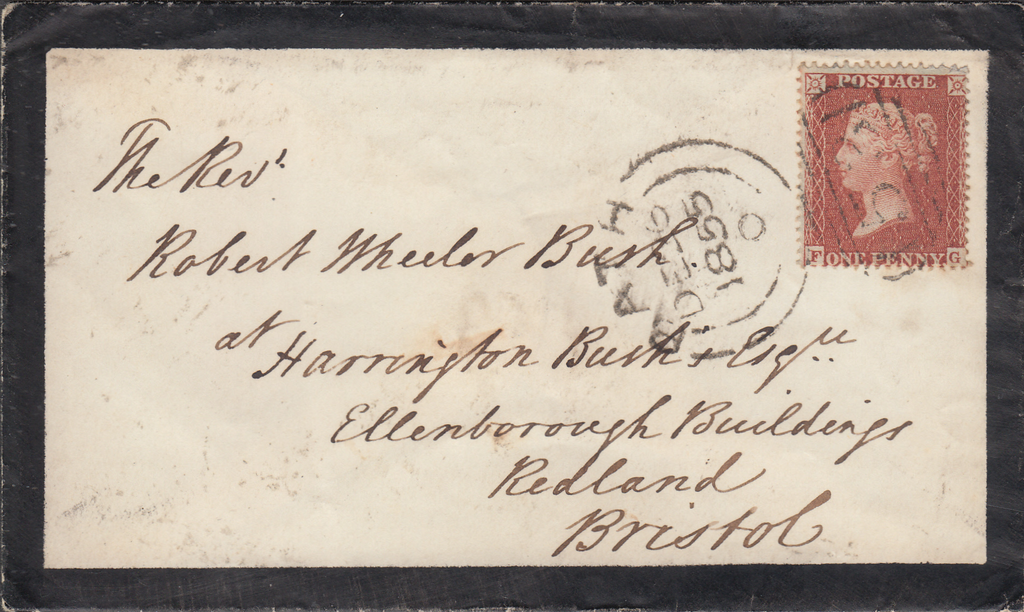 POSTAGE
The Revd.
Robert Wheeler Bush.
at Harrington Bush, Esqre
Ellenborough Buildings
Redland
Bristol
BATH
1855
F ONE PENNY G